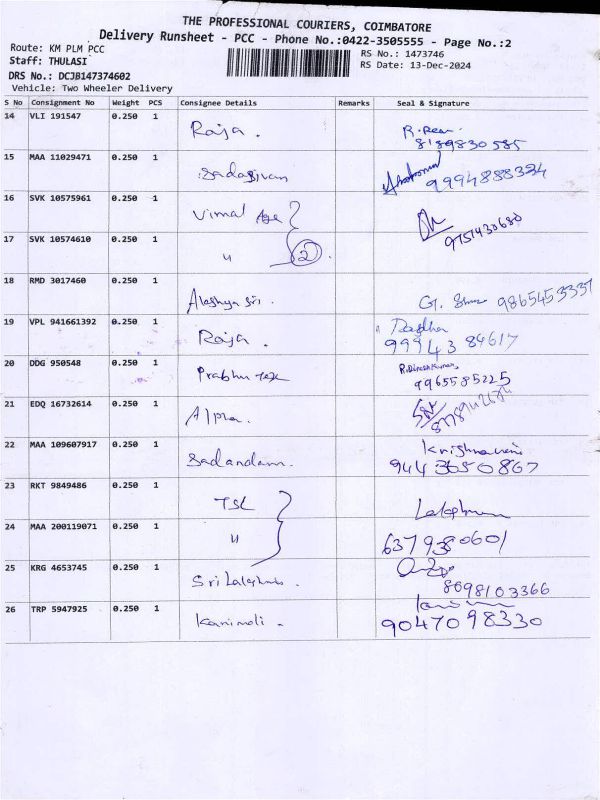 THE PROFESSIONAL COURIERS, COIMBATORE
Delivery Runsheet - PCC - Phone No.:0422-3505555 - Page No.:2
Route: KM PLM PCC RS No.: 1473746
Staff: THULASI RS Date: 13-Dec-2024
DRS No.: DCJB147374602
Vehicle: Two Wheeler Delivery
S No Consignment No Weight PCS Consignee Details Remarks Seal & Signature
14 VLI 191547 0.250 1 Raja.
8189830585
15 MAA 11029471 0.250 1 Sadasivam
9994888324
16 SVK 10575961 0.250 1 Vimal
9751430680
17 SVK 10574610 0.250 1 " 2
18 RMD 3017460 0.250 1 G. 9865453337
19 VPL 941661392 0.250 1 Raja.
99943 84617
20 DDG 950548 0.250 1 Prabhu Tex R.Dineshkumar,
9965585225
21 EDQ 16732614 0.250 1 Alpha.
22 MAA 109607917 0.250 1 Sadandam. Krishnaveni
9443650867
23 RKT 9849486 0.250 1 TSL
24 MAA 200119071 0.250 1 " 6379380601
25 KRG 4653745 0.250 1 Sri Lakshmi.
8098103366
26 TRP 5947925 0.250 1 Kanimoli.
9047098330